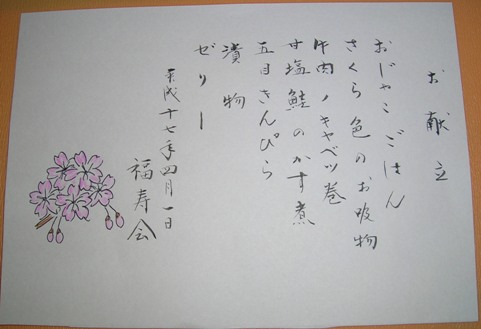 お献立
おじゃこごはん
さくら色のお吸物
牛肉ノキャベツ巻
甘塩鮭のかす煮
五目きんぴら
漬物
ゼリー
平成十七年四月一日
福寿会